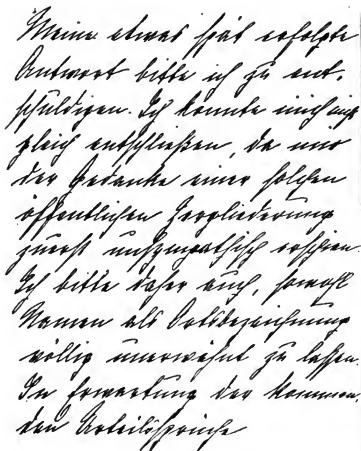 Meine etwas spät erfolgte
Antwort bitte ich zu ent-
schuldigen. Ich konnte mich nicht
gleich entschließen, da mir
der Gedanke einer solchen
öffentlichen Zergliederung
zuerst unsympathisch erschien.
Ich bitte daher auch, sowohl
Namen als Ortsbezeichnung
völlig unerwähnt zu lassen.
In Erwartung der kommen-
den Urteilssprüche